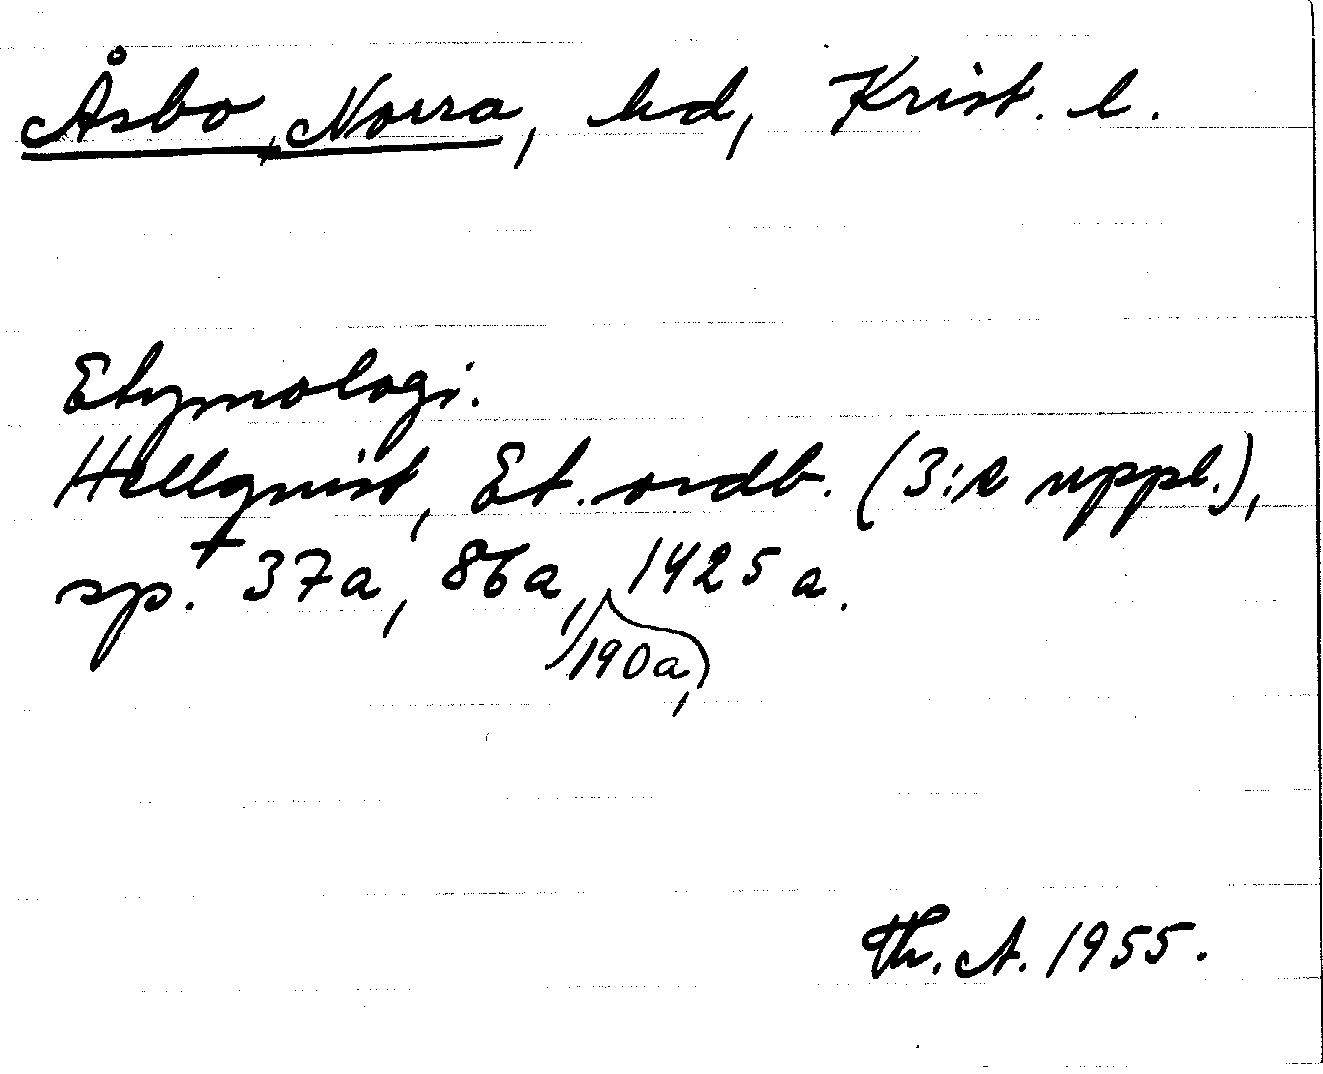 Åsbo, Norra, hd, Krist. l.
Etymologi.
Hellquist, Et. ordb. (3:e uppl.),
sp. 37a, 86a, 190a, 1425 a.
Th. A. 1955.